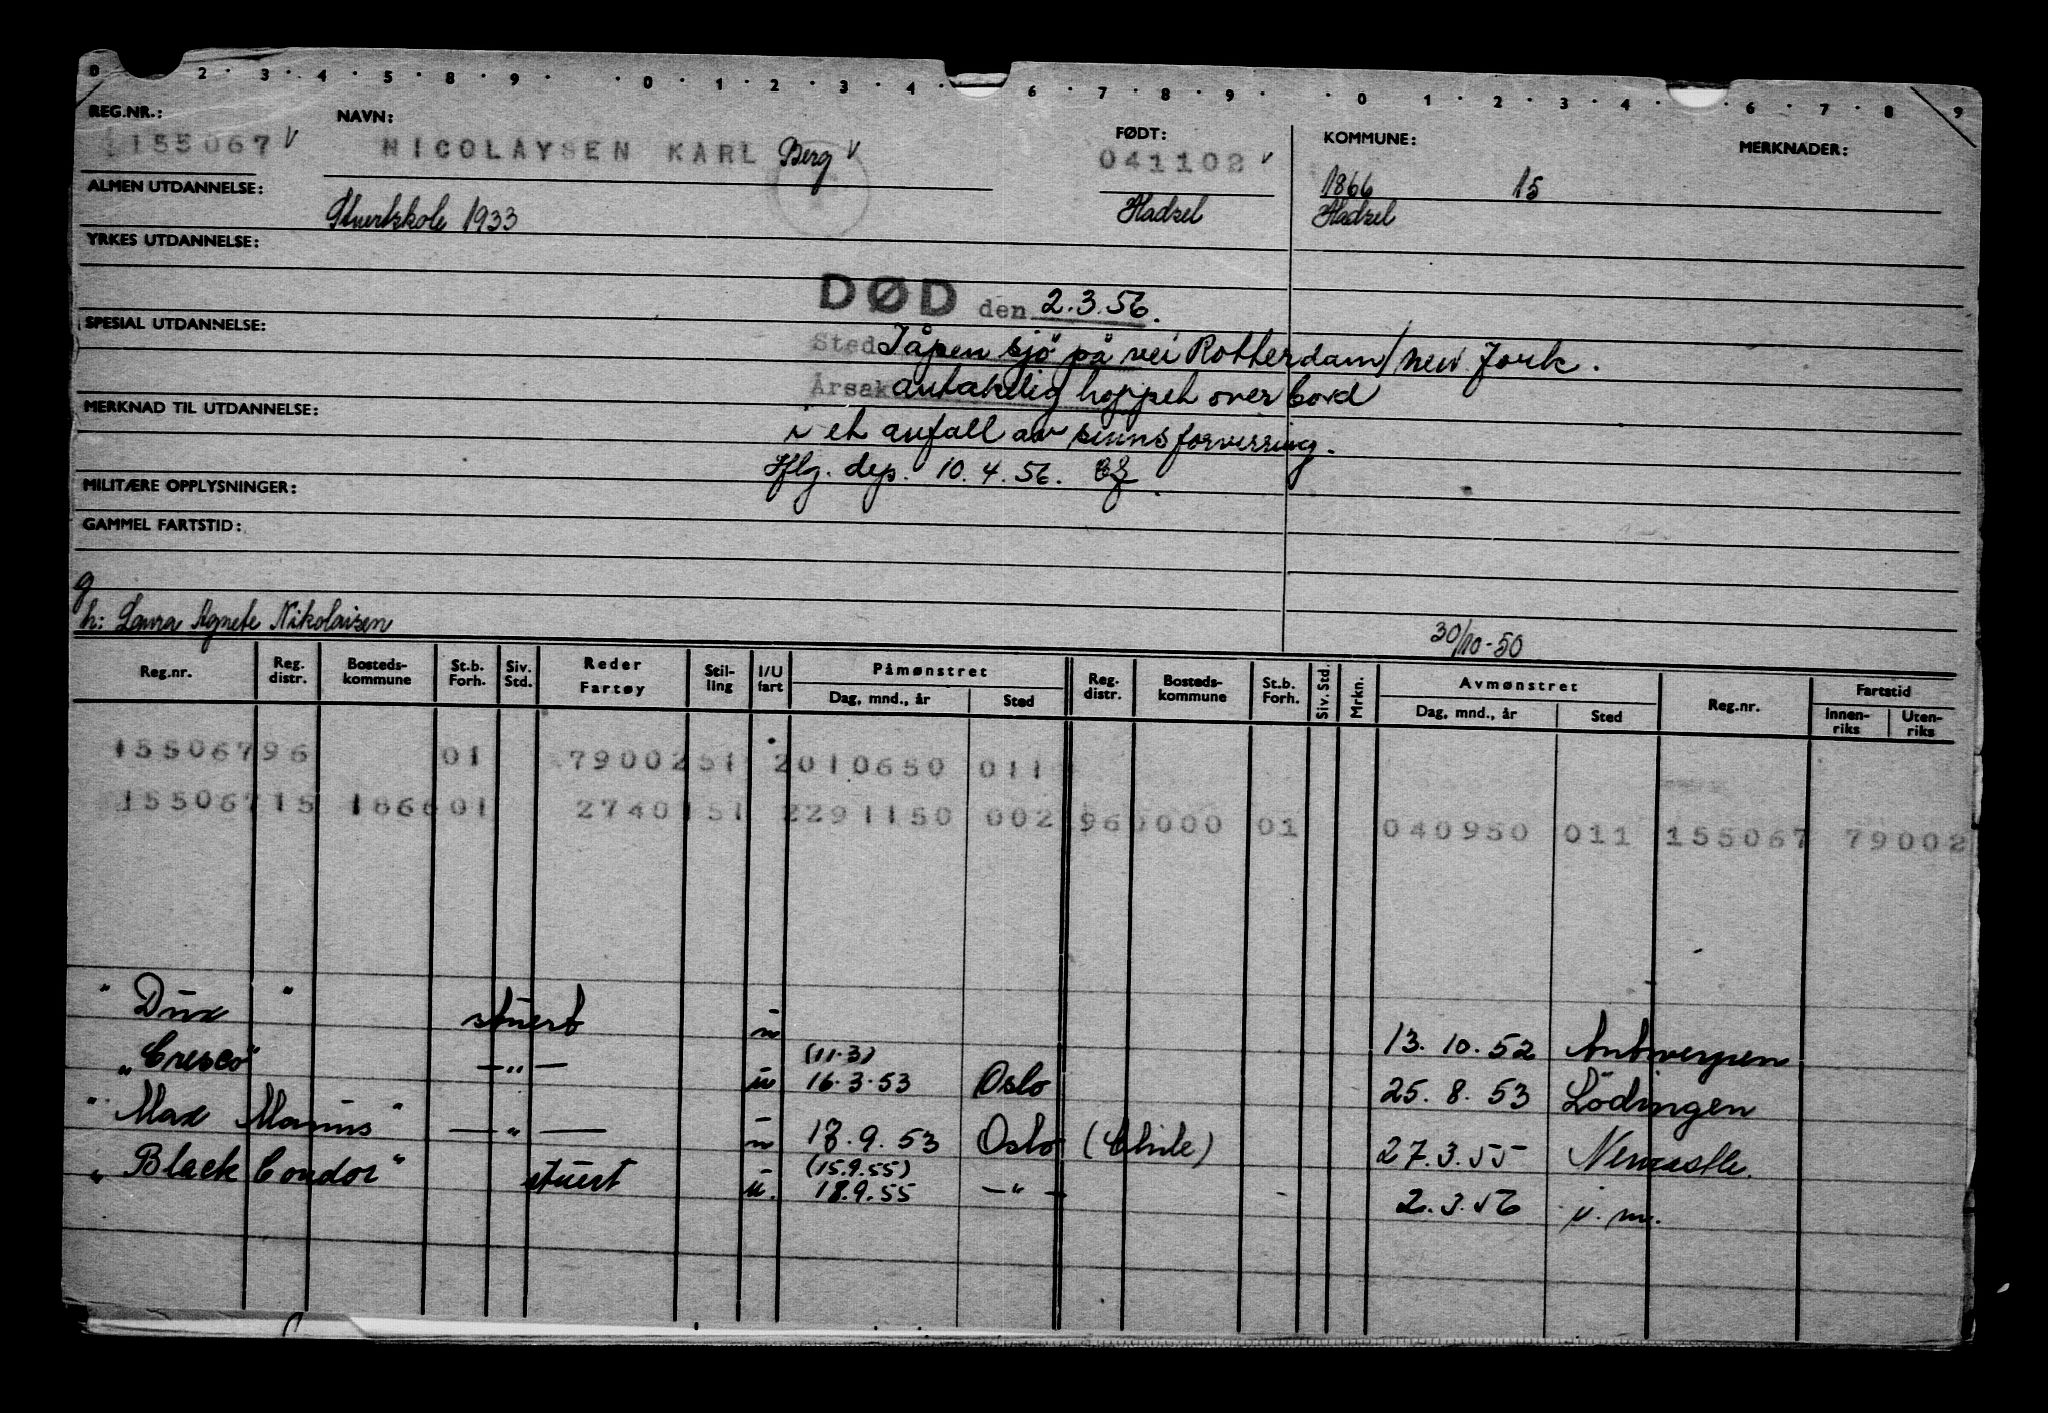 0 2 · 3 · 4 · 5 · 8 · 9 · · 0 · 1 · 2 · 3 · 4 · 6 · 7 · 8 · 9 · · 0 · 1 · 2 · 3 · 4 · 6 · 7 · 8 · 9
REG.NR.: NAVN: FØDT: KOMMUNE: MERKNADER:
155067 v NICOLAYSEN KARL Berg v 041102 v 1866 15
ALMEN UTDANNELSE: Stuertskole 1933 Hadsel Hadsel
YRKES UTDANNELSE:
DØD den 2.3.56.
SPESIAL UTDANNELSE:
Sted I åpen sjö på vei Rotterdam/New York.
Årsak antaklig hoppet over bord
MERKNAD TIL UTDANNELSE:
i et anfall av sinnsforvirring.
Hflg. dep. 10.4.56.
MILITÆRE OPPLYSNINGER:
GAMMEL FARTSTID:
g
h: Laura Agnete Nikolaisen
30/10-50
Reg.nr. Reg. distr. Bosteds-kommune St.b. Forh. Siv. Std. Reder Fartøy Stil-ling I/U fart Påmønstret Dag, mnd., år Sted Reg. distr. Bosteds-kommune St.b. Forh. Siv. Std. Mrkn. Avmønstret Dag, mnd., år Sted Reg.nr. Fartstid Innen-riks Uten-riks
155067 96 01 7900251 2010650 011
155067 15 1866 01 2740151 2291150 002 96 0000 01 040950 011 155067 79002
" Dux " stuert u 13.10.52 Antwerpen
„Cresco" — „ — u (11.3) 16.3.53 Oslo 25.8.53 Lödingen
" Max Manus " — " — u 18.9.53 Oslo (Chile) 27.3.55 Newcastle.
„ Black Condor" stuert u. (15.9.55) 18.9.55 — " — 2.3.56